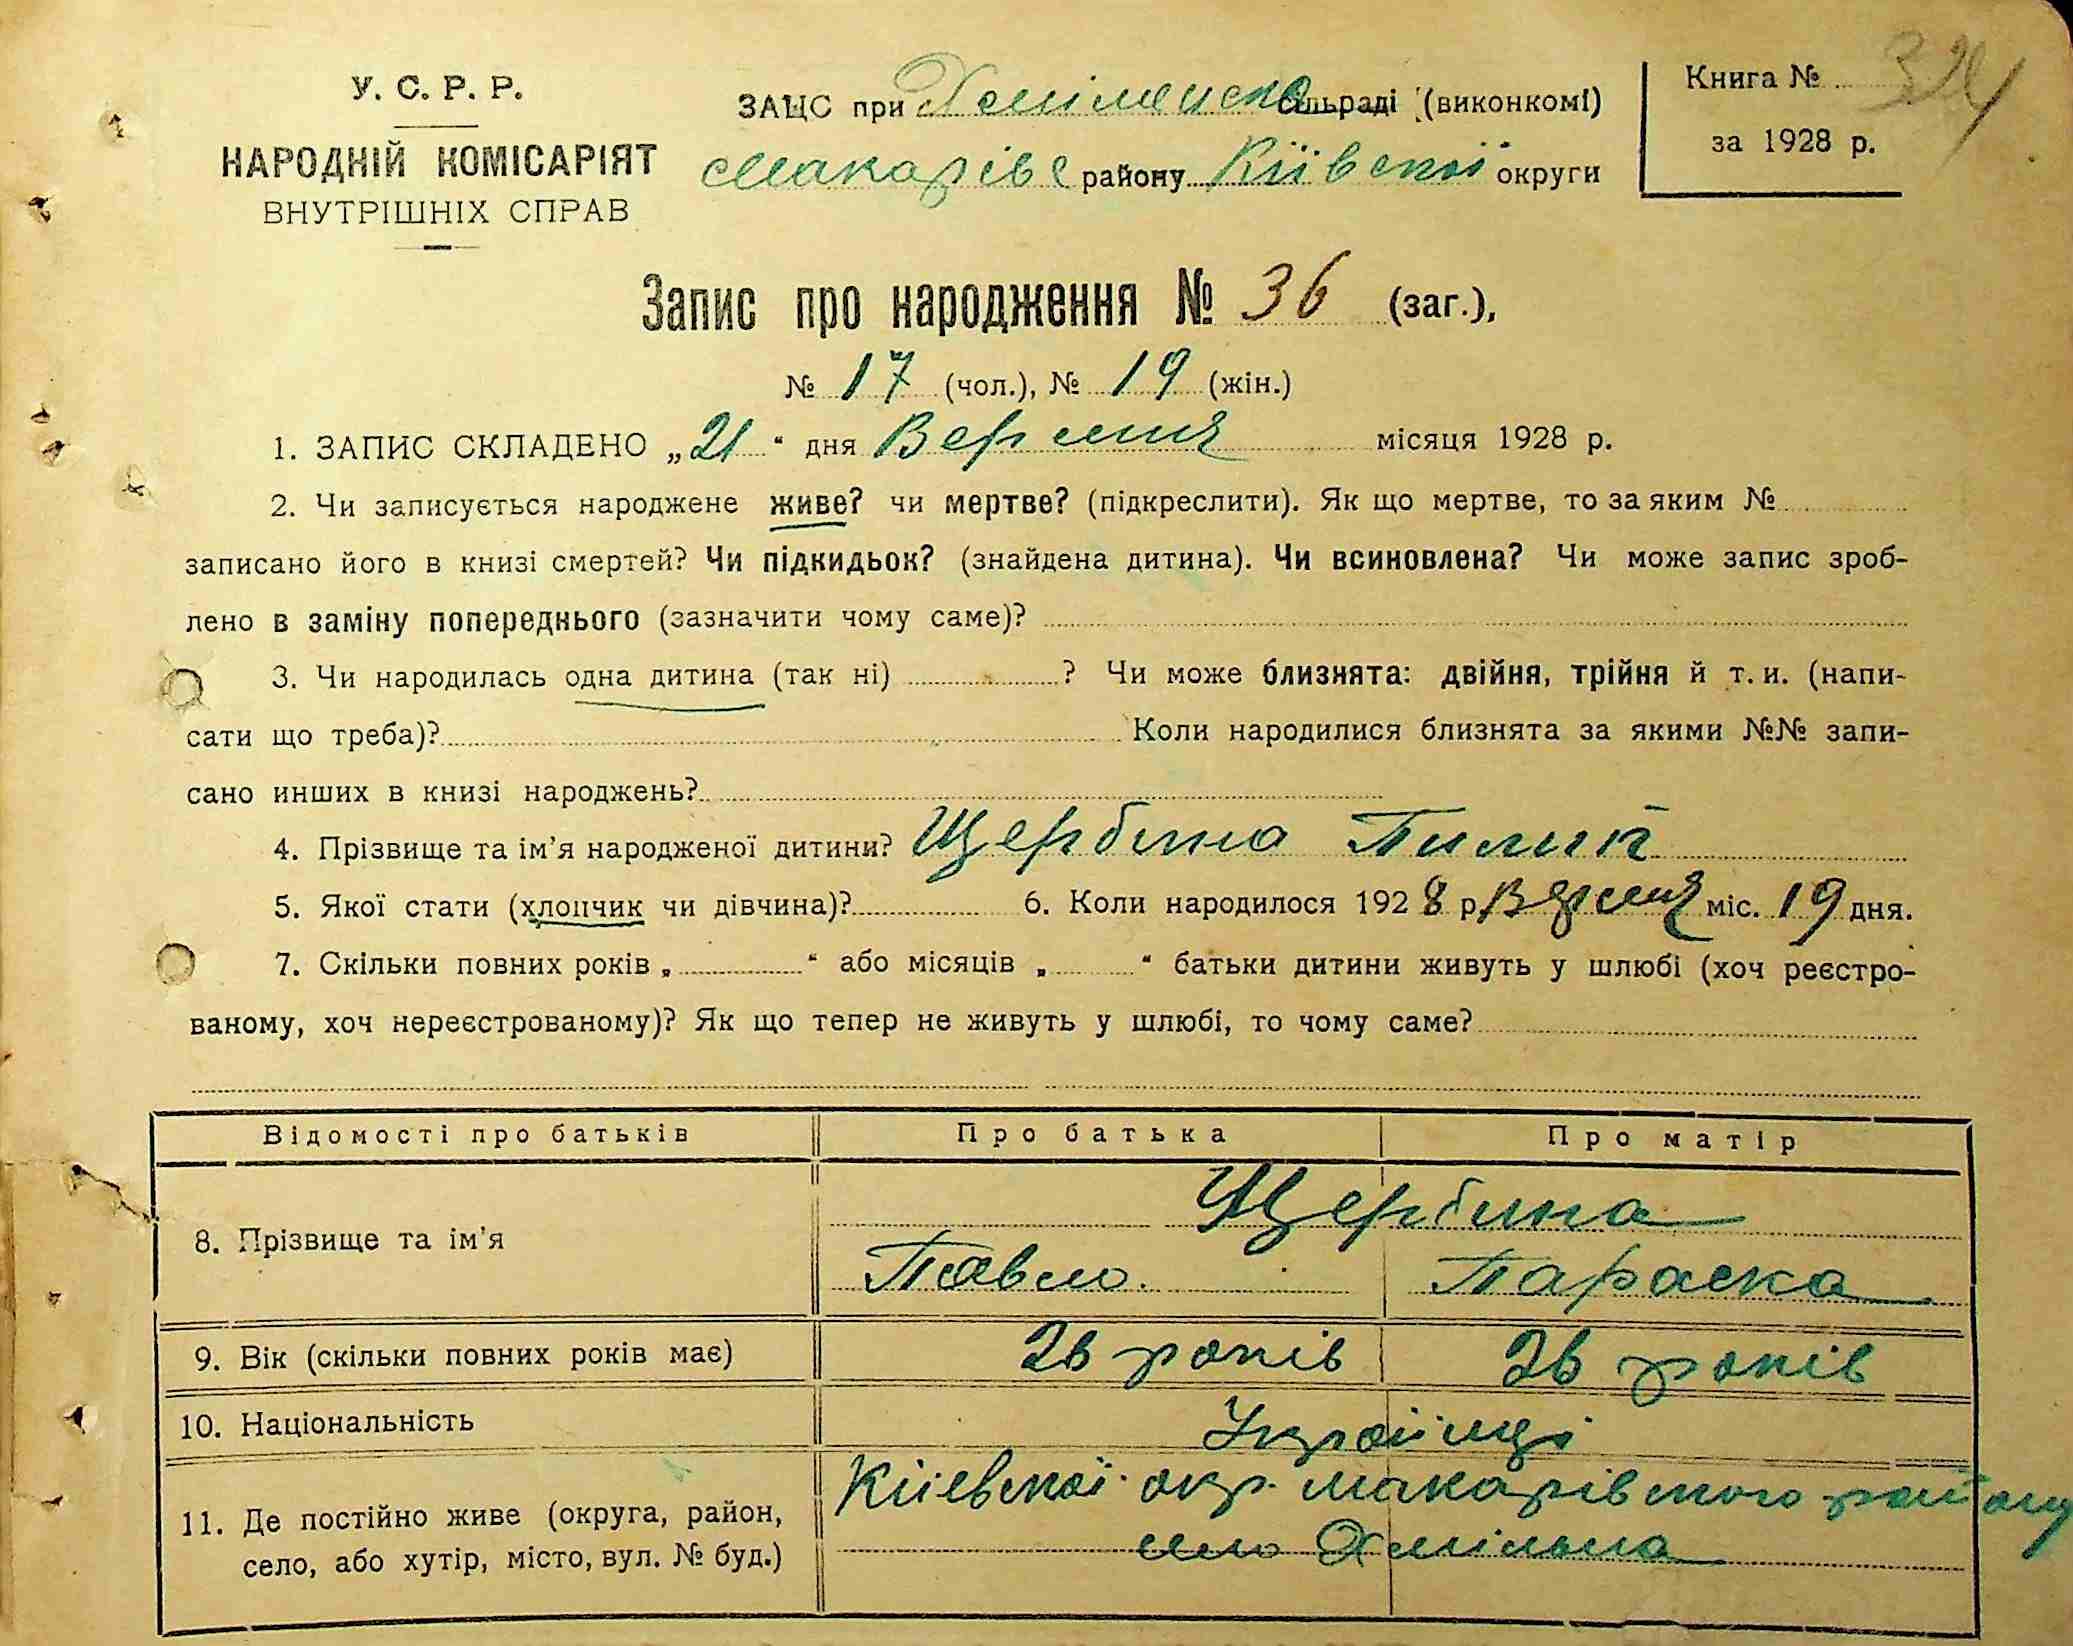 У. С. Р. Р.
НАРОДНІЙ КОМІСАРІЯТ
ВНУТРІШНІХ СПРАВ
ЗАЦС при Хмілянска сільраді (виконкомі)
Макарівс району Київської округи
Книга № 324
за 1928 р.
Запис про народження № 36 (заг.),
№ 17 (чол.), № 19 (жін.)
1. ЗАПИС СКЛАДЕНО „21“ дня Вересня місяця 1928 р.
2. Чи записується народжене живе? чи мертве? (підкреслити). Як що мертве, то за яким №
записано його в книзі смертей? Чи підкидьок? (знайдена дитина). Чи всиновлена? Чи може запис зроб-
лено в заміну попереднього (зазначити чому саме)?
3. Чи народилась одна дитина (так ні) ? Чи може близнята: двійня, трійня й т. и. (напи-
сати що треба)? Коли народилися близнята за якими №№ запи-
сано инших в книзі народжень?
4. Прізвище та ім'я народженої дитини? Щербина Пилип
5. Якої стати (хлопчик чи дівчина)? 6. Коли народилося 1928 р. Вересня міс. 19 дня.
7. Скільки повних років „ “ або місяців „ “ батьки дитини живуть у шлюбі (хоч реєстро-
ваному, хоч нереєстрованому)? Як що тепер не живуть у шлюбі, то чому саме?
Відомості про батьків Про батька Про матір
8. Прізвище та ім'я Щербина
Павло Параска
9. Вік (скільки повних років має) 26 років 26 років
10. Національність Українці
11. Де постійно живе (округа, район, Київської окр. Макарівського району
село, або хутір, місто, вул. № буд.) село Хмільна